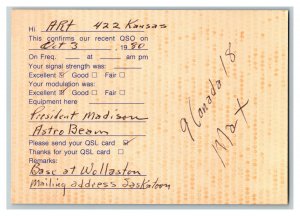 Hi ART 422 Kansas
This confirms our recent QSO on
Oct 3 1980
On Freq. at am pm
Your signal strength was:
Excellent Good Fair
Your modulation was:
Excellent Good Fair
Equipment here
President Madison
Astro Beam
Please send your QSL card
Thanks for your QSL card
Remarks:
Base at Wollaston
Mailing address Saskatoon
9 Canada 18
Max